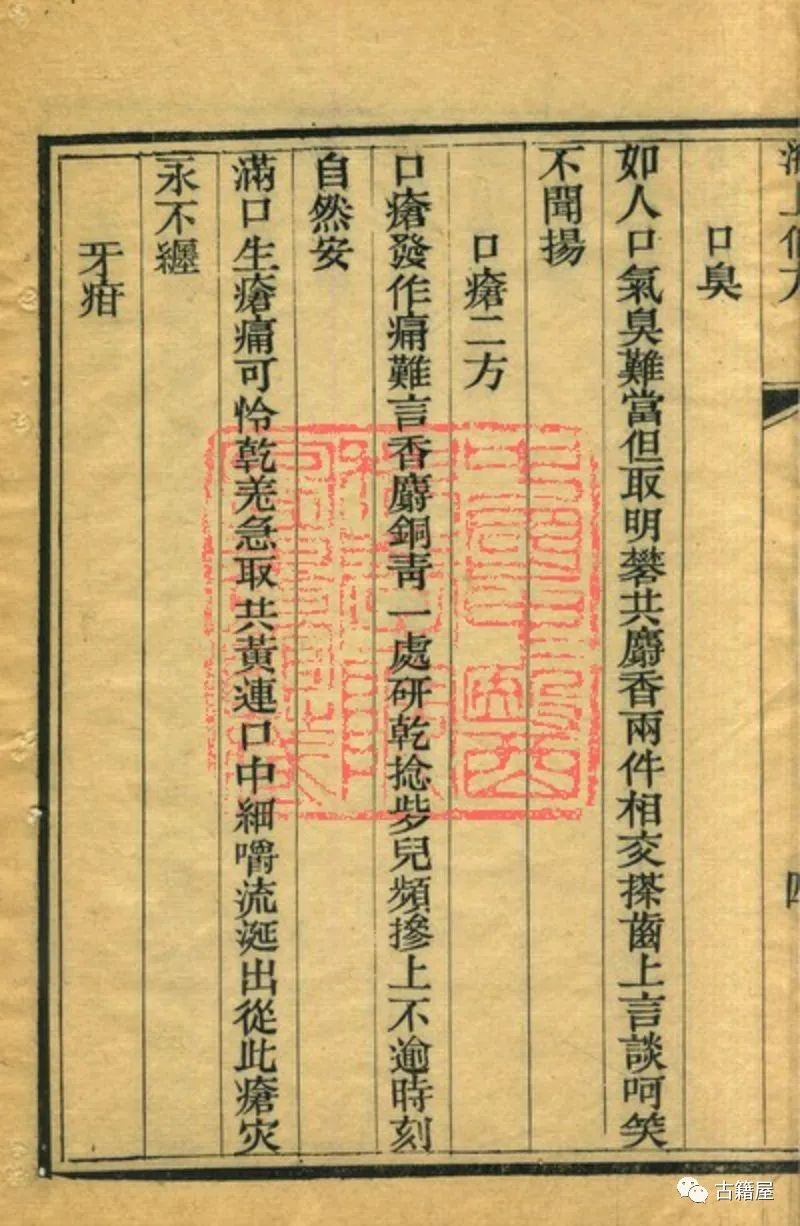 海上仙方
四
口臭
如人口氣臭難當但取明礬共麝香兩件相交搽齒上言談呵笑
不聞揚
口瘡二方
口瘡發作痛難言香麝銅青一處研乾捻些兒頻摻上不逾時刻
自然安
滿口生瘡痛可怜乾羌急取共黃連口中細嚼流涎出從此瘡灾
永不纒
牙疳
古籍屋